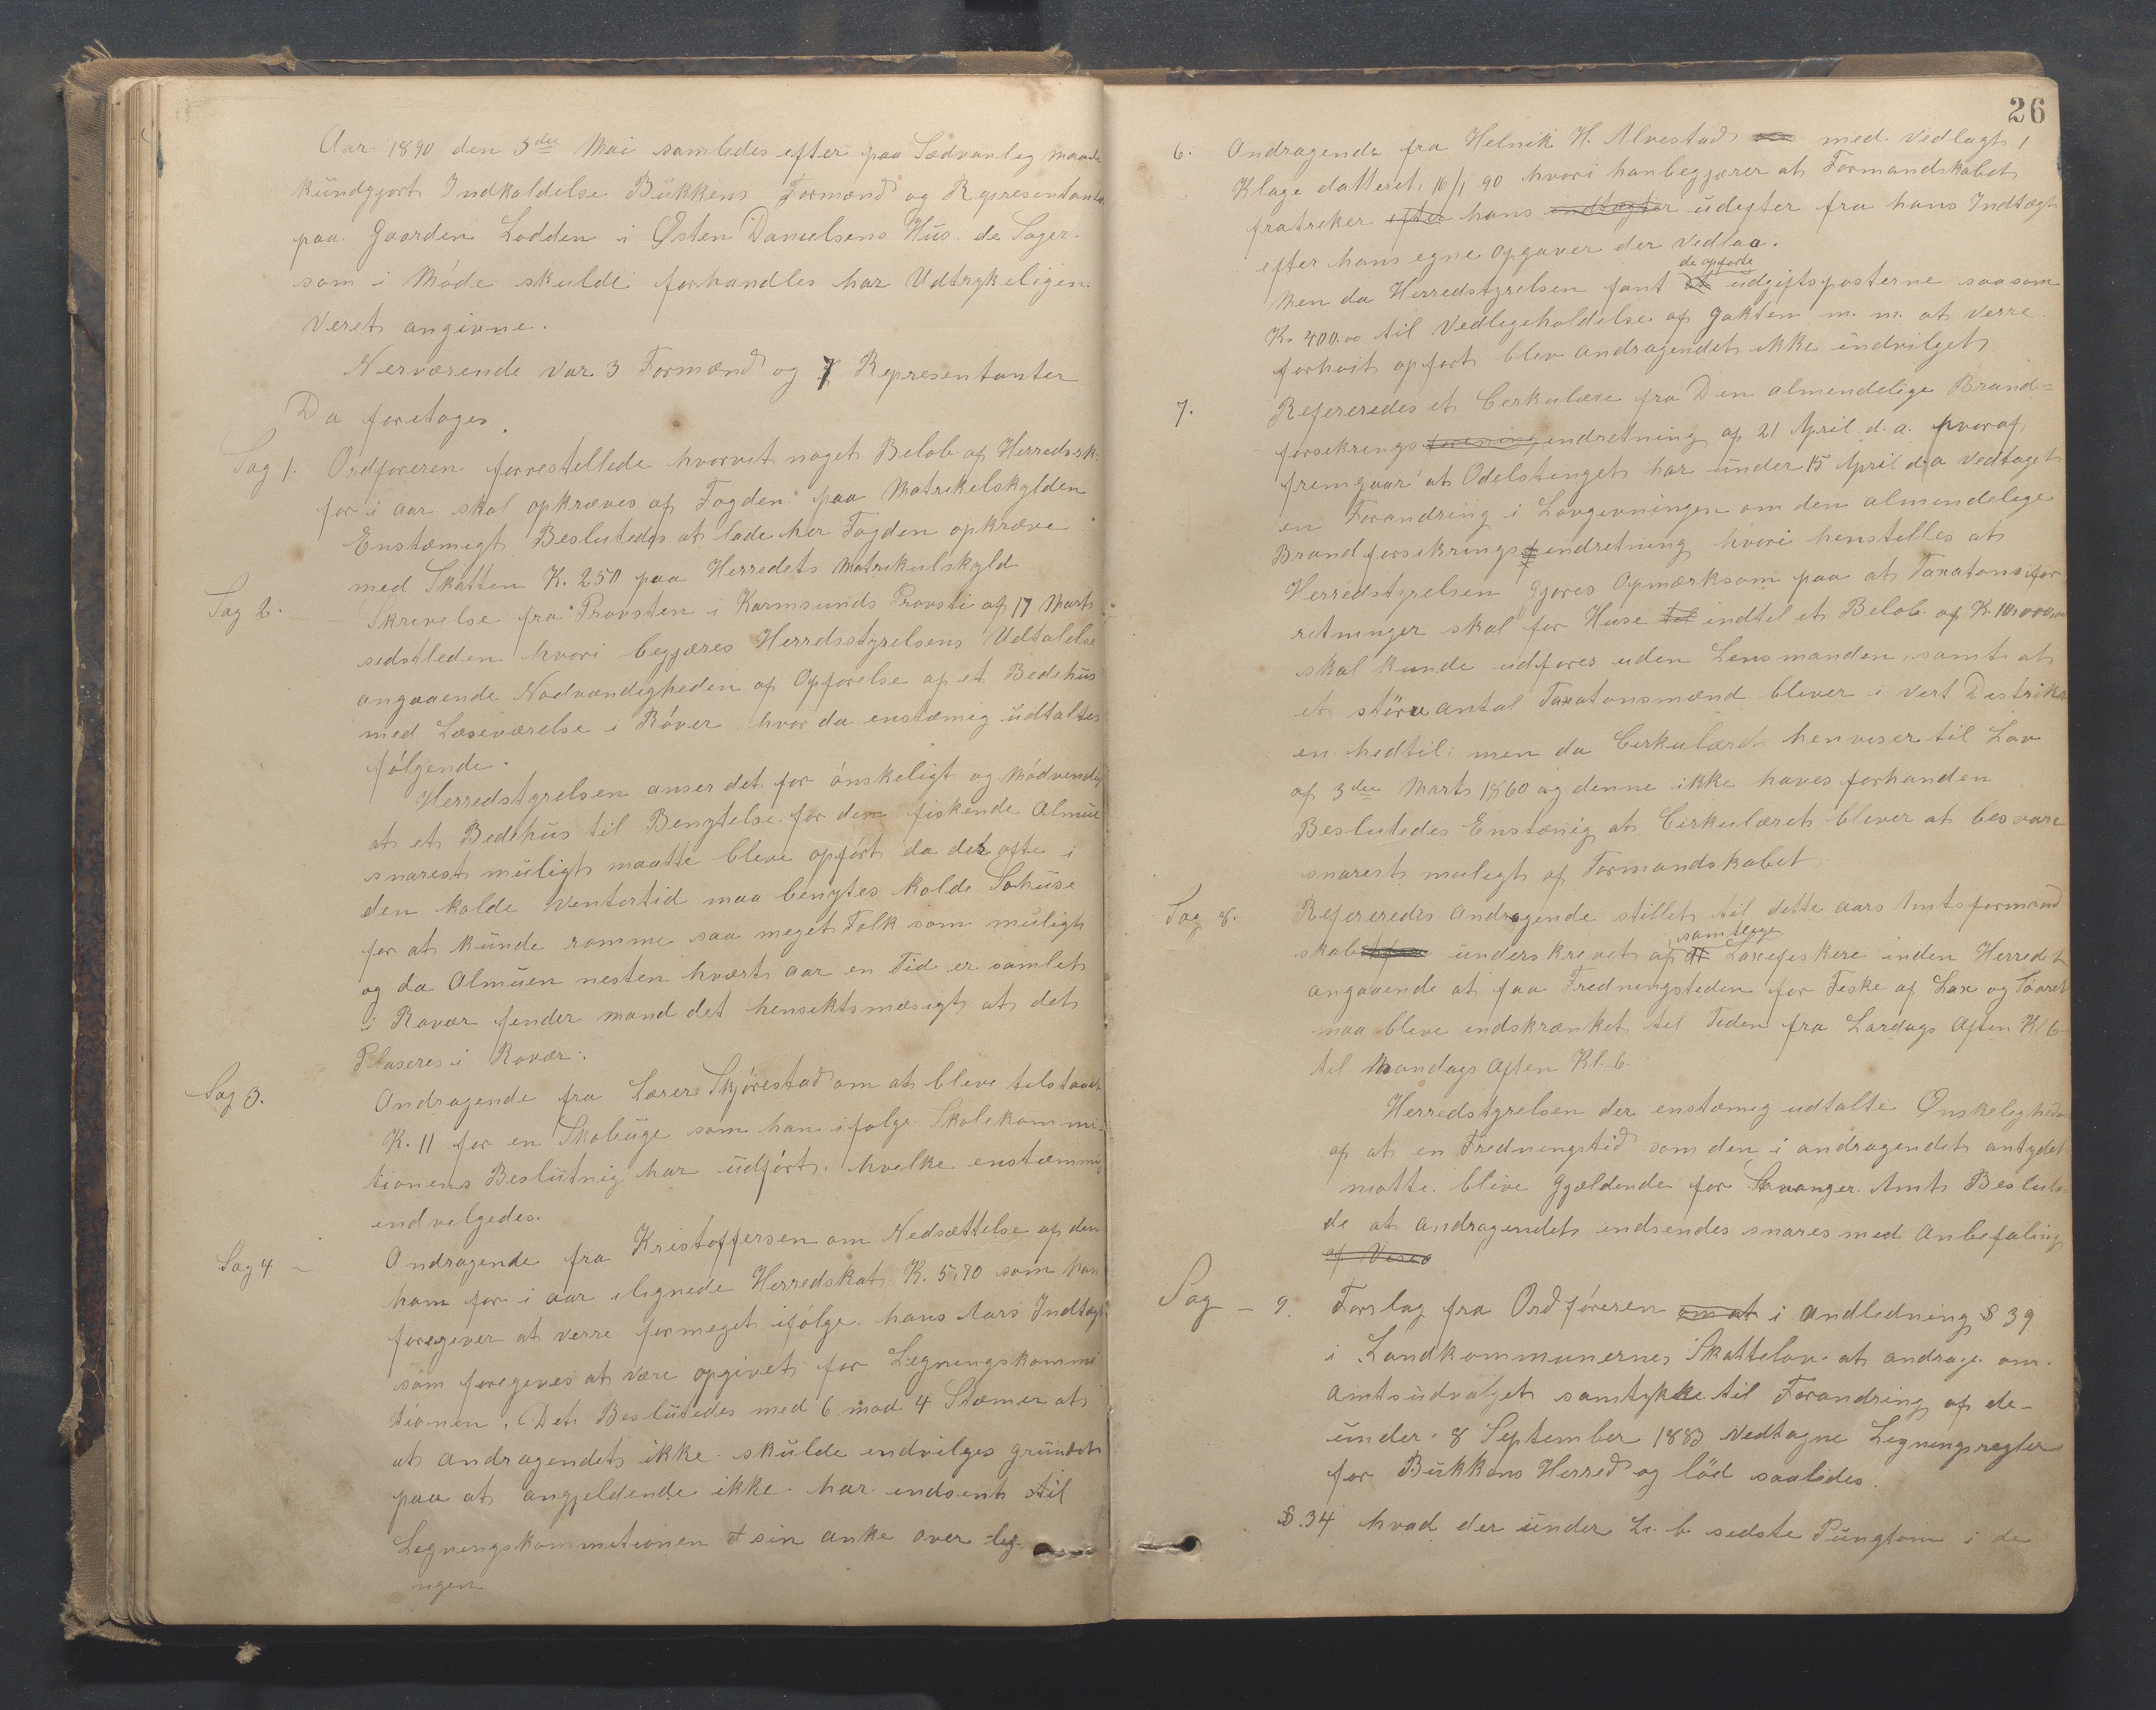 Aar 1890 den 3die Mai samledes efter paa Sædvanleg maade
kundgjort Indkaldelse Bukkens Formænd og Representanter
paa Gaarden Lodden i Østen Danielsens Hus. de Sager
som i Møde skulde forhandles har Udtrykeligen
veret angivne.
Nerværende var 3 Formænd og 7 Representanter
Da foretoges.
Sag 1. Ordføreren forrestellede hvorvit noget Beløb af Herredssk.
for i aar skal opkræves af Fogden paa Matrikelskylden
Enstæmigt Beslutedes at lade her Fogden opkræve
med Skatten K. 250 paa Herredets Matrikulskyld
Sag 2. Skrevelse fra Provsten i Karmsunds Provsti af 17 Marts
sedstleden hvori begjæres Herredsstyrelsens Udtalelse
angaaende Nødvændigheden af Opførelse af et Bedehus
med Læseværelse i Røver hvor da enstæmig udtaltes
følgende.
Herredstyrelsen anser det for ønskeligt og Nødvendig
at et Bedehus til Benytelse for den fiskende Almue
snarest muligt maatte bleve opført da der ofte i
den kolde Ventertid maa benytes kolde Søhuse
for at kunde romme saa meget Folk som muligt
og da Almuen nesten hvært aar en Tid er samlet
i Rovær fender mand det hensektsmæsigt at det
Plaseres i Rovær.
Sag 3. Andragende fra Lærer Skjørestad om at bleve telstaaet
K. 11 for en Skoleuge som han ifølge Skolekommi-
tionens Beslutnig har udført. hvelke enstæmmig
endvelgedes.
Sag 4 - Andragende fra Kristoffersen om Nedsættelse af den
ham for i aar ilignede Herredskat K. 5,70 som han
foregever at verre formeget ifølge hans Aars Indtægt
som foregeves at være opgivet for Legningskommi
tionen. Det Beslutedes med 6 mod 4 Stæmer at
at andragendet ikke skulde endvilges grundet
paa at angjeldende ikke har endsent til
Legningskommitionen sin anke over leg-
ngen
26
6. Andragende fra Helnik H. Alvestad med Vedlagt 1
Klage datteret 16/1 90 hvori hanbegjærer at Formandskabet
fratreker efter hans endtægter udegter fra hans Indtægt
efter hans egne Opgaver der Vedlaa.
de opførte
Men da Herredstyrelsen fant udgiftsposterne saasom
K. 400.00 til Vedligeholdelse af Jakten m. m. at verre
forhøit opført blev andragendet ikke indvilget
7. Refereredes et Cerkulære fra Den almendelige Brand=
forsekrings forening endretning af 21 April d.a. hvoraf
fremgaar at Odelstinget har under 15 April d.a vedtaget
en Forandring i Lovgevningen om den almindelege
Brandforsikrings endretning hvori henstelles at
Herredstyrelsen Gjøres Opmærksom paa at Taxatonsfor
retninger skal for Huse til indtel et Beløb af K. 10,000,00
skal kunde udføres uden Lensmanden, samt at
et større antal Taxatonsmænd blever i vert Distrikt
en hedtil; men da Cerkulæret henveser til Lov
af 3die Marts 1860 og denne ikke haves forhanden
Beslutedes Enstæmig at Cirkulæret blever at besvare
snarest mulegt af Formandskabet
Sag 8. Refereredes Andragende stillet til dette aars Amtsformand
samtlege
skab underskrevet af Laxefeskere inden Herredet
angaaende at faa Fredningsteden for Feske af Lax og Søøret
maa bleve indskrænket til Teden fra Lørdags Aften Kl 6
til Mandags Aften Kl. 6.
Herredstyrelsen der enstæmig udtalte Ønskeligheden
af at en Fredningstid som den i andragendet antydet
matte blive Gjældende for Stavanger Amt Beslute
de at Andragendet endsendes snares med Anbefaling
af Viseo
Sag - 9. Forslag fra Ordføreren om at i Andledning § 39
i Landkommunernes Skattelov at andrage om
Amtsudvalget samtykke til Forandring af de
under 8 September 1883 Vedtagne Legningsregler
for Bukkens Herred og lød saaledes.
§.34 hvad der under Lr. b. sedste Pungtom i de